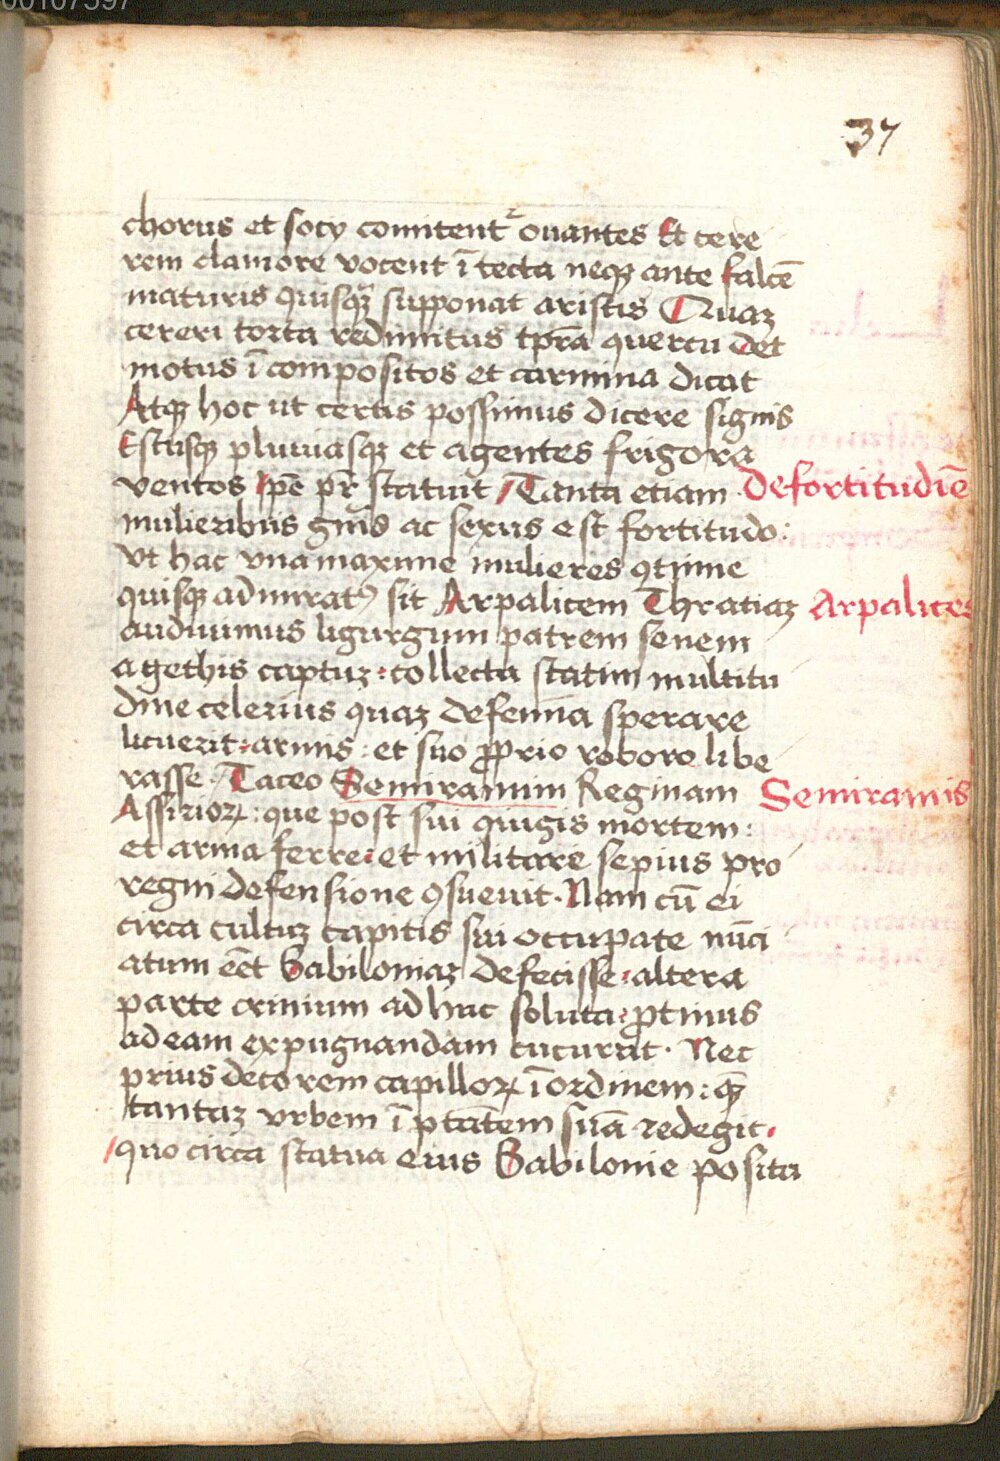 00107397
37
chorus et socy comitentᷣ ouantes Et cere
rem clamore vocent ī tecta neqꝫ ante falcē
maturis quisqꝫ supponat aristis Quaꝫ
cereri torta redimitus tp̄ra quercu det
motus ī compositos et carmina dicat
Atqꝫ hoc ut certis possimus dicere signis
Estusqꝫ pluuiasqꝫ et agentes frigora
ventos ip̄e pr̄ statuit Tanta etiam
De fortitudīe
mulieribus gn̄is ac sexus est fortitudo:
vt hac vna maxime mulieres ꝯtinue
quisqꝫ admiratꝰ sit Arpalicem Thratiaꝫ
Arpalices
audiuimus ligurgum patrem senem
a gethis captuꝫ: collecta statim multitu
dine celerius quaꝫ de femina sperare
licuerit: armis: et suo ꝓprio roboro libe
rasse. Taceo Semiramim Reginam
Semiramis
Assirioꝝ: que post sui ꝯiugis mortem:
et arma ferre: et militare sepius pro
regni defensione ꝯsueuit. Nam cū ei
circa cultuꝫ capitis sui occupate nūci
atum eēt Babiloniaꝫ defecisse: altera
parte crinium ad huc soluta: ꝓtinus
ad eam expugnandam cucurrit. Nec
prius decorem capilloꝝ ī ordinem: qꝫ̄
tantaꝫ vrbem ī ptātem suā redegit.
quo circa statua eius Babilonie posita